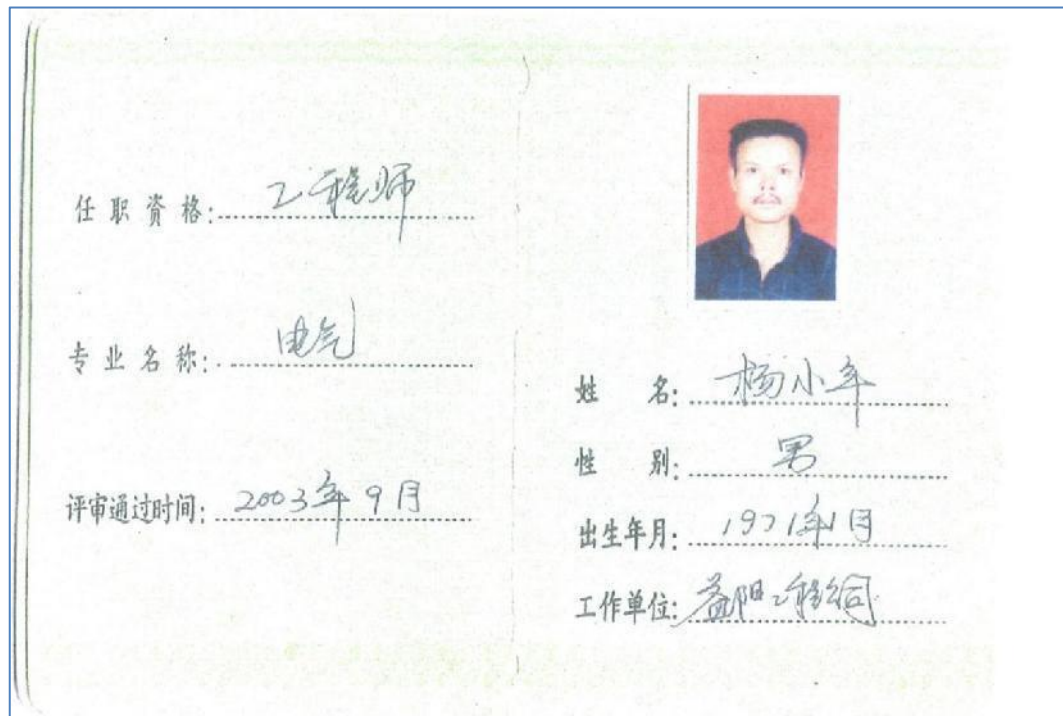 任职资格: 工程师
专业名称: 电气
评审通过时间: 2003年9月
姓 名: 杨小年
性 别: 男
出生年月: 1971年1月
工作单位: 益阳工程